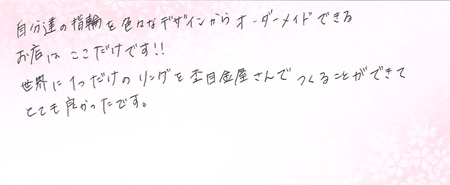 自分達の指輪を色々なデザインからオーダーメイドできる
お店はここだけです!!
世界に1つだけのリングを杢目金屋さんでつくることができて
とても良かったです。